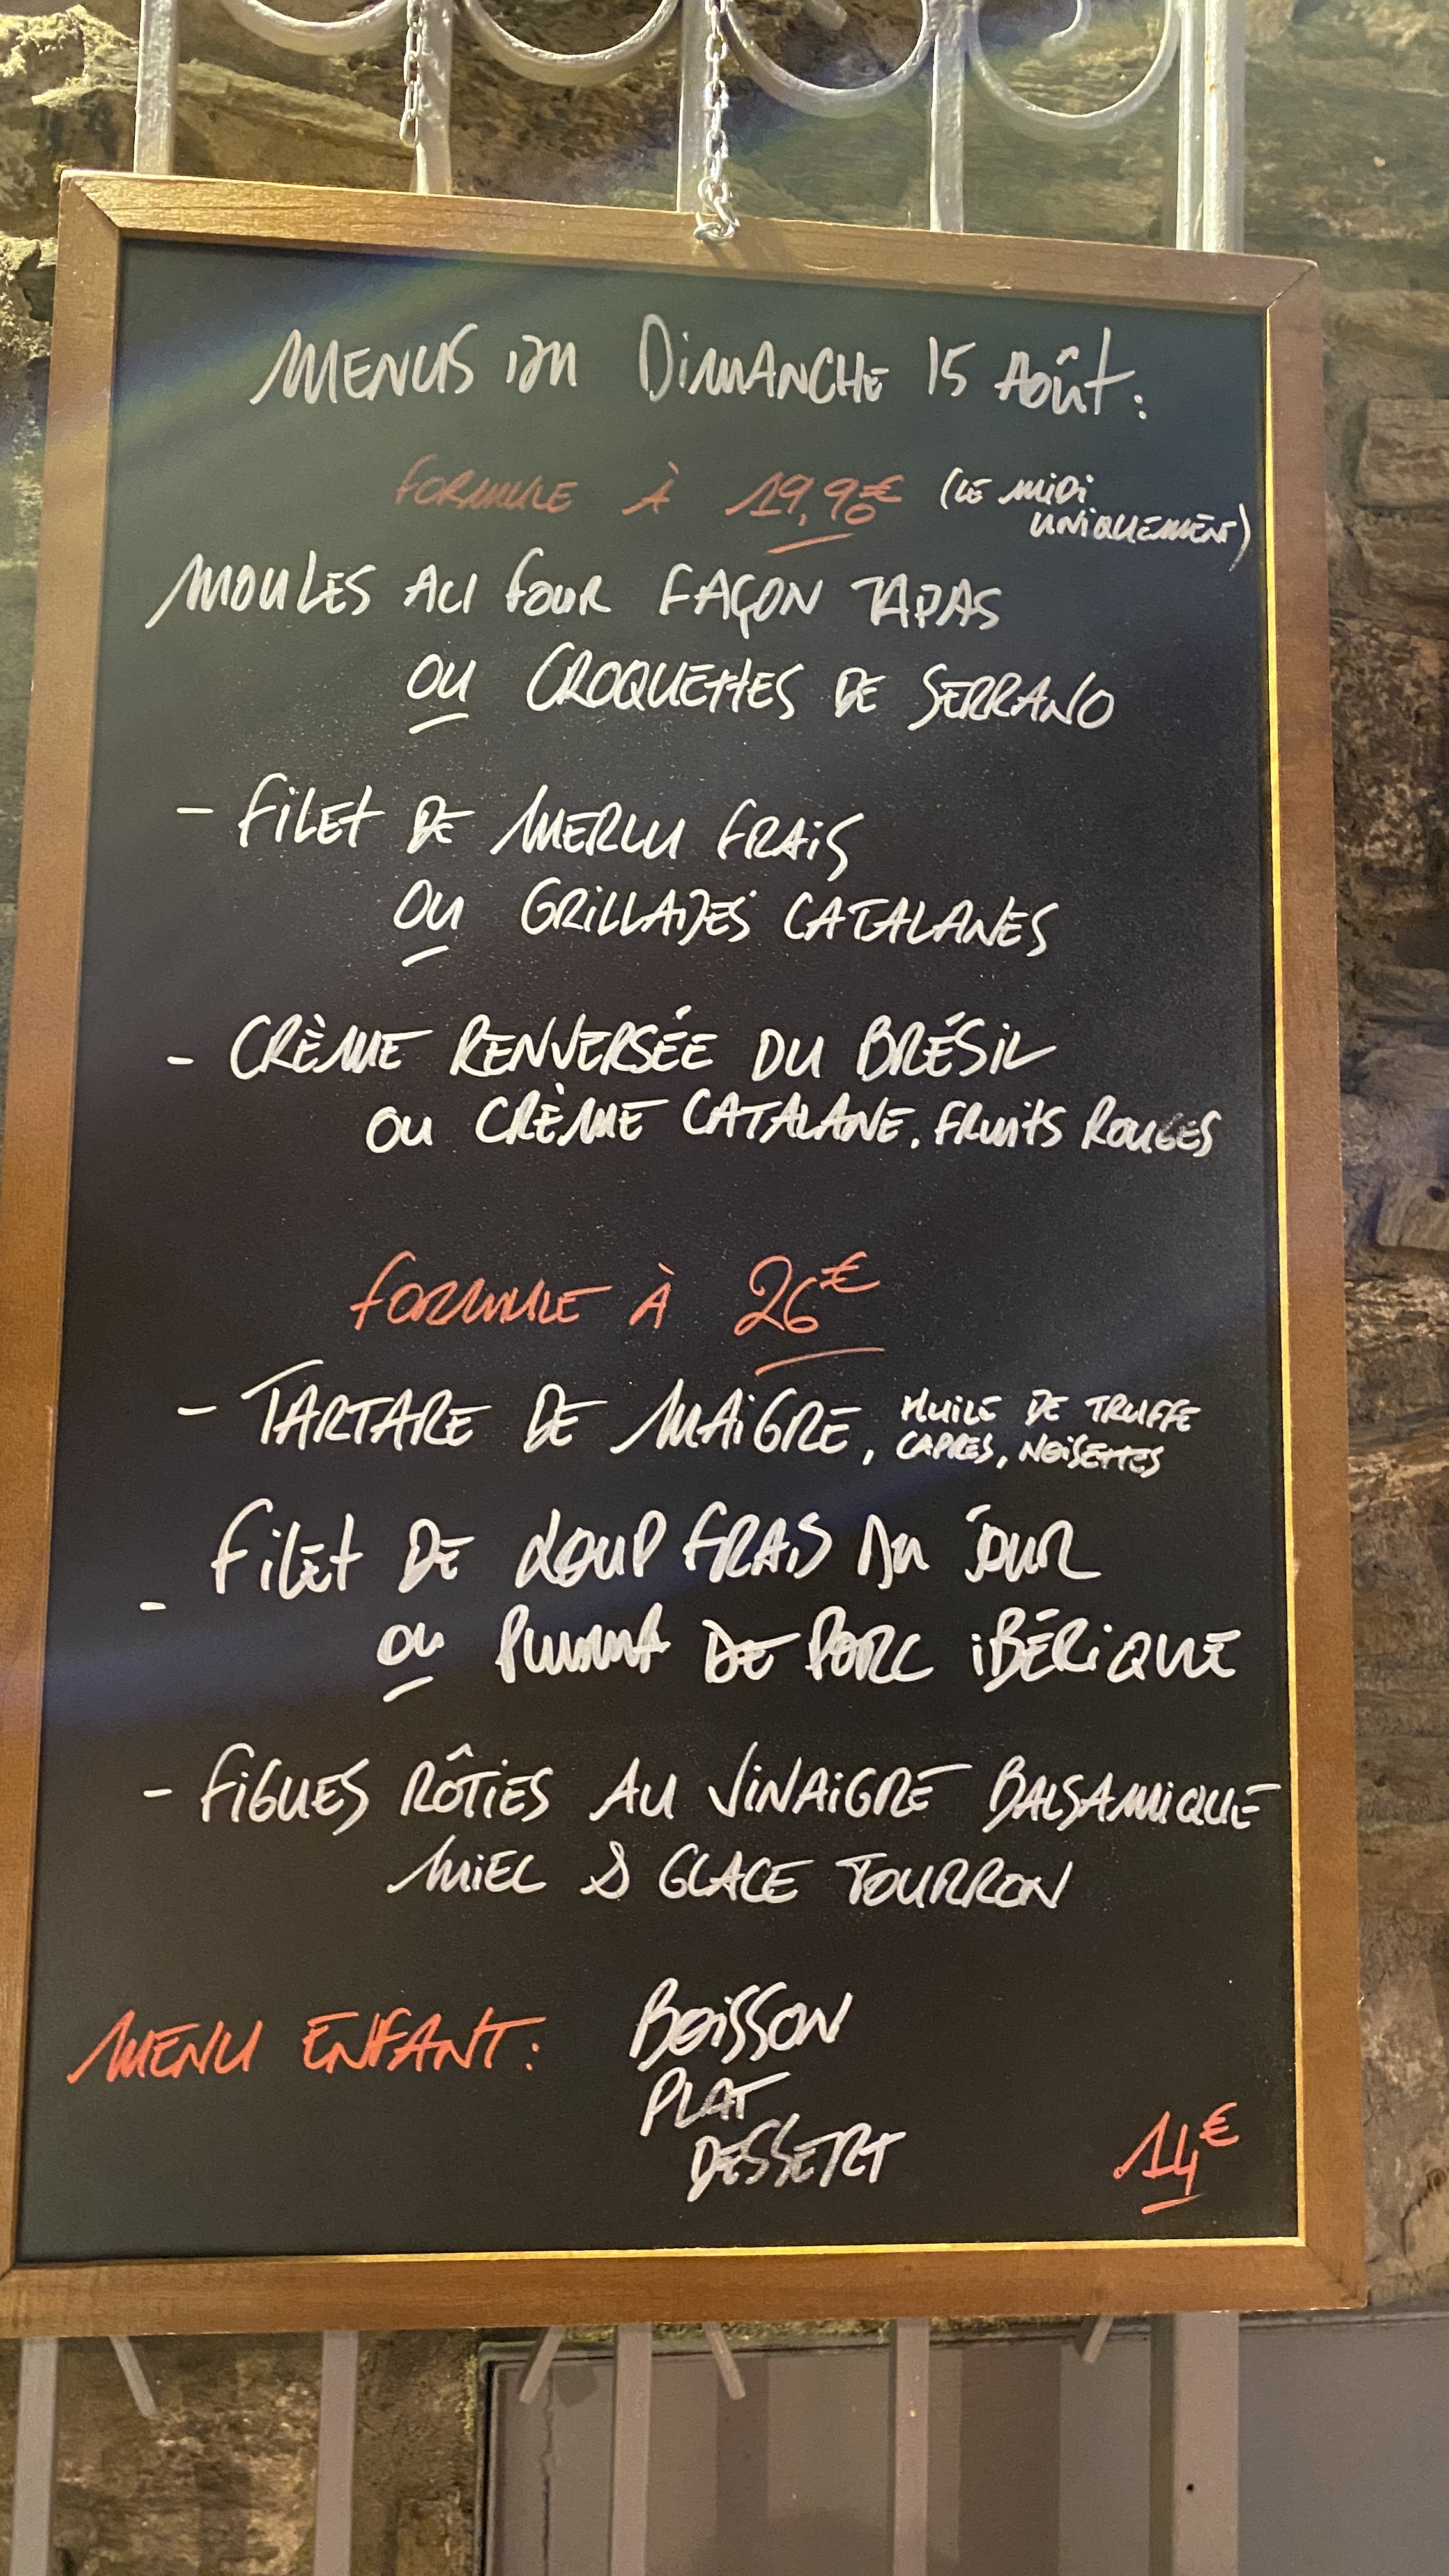 MENUS DU DIMANCHE 15 AOÛT :
FORMULE À 19,90€ (LE MIDI
UNIQUEMENT)
MOULES AU FOUR FAÇON TAPAS
OU CROQUETTES DE SERRANO
- FILET DE MERLU FRAIS
OU GRILLADES CATALANES
- CRÈME RENVERSÉE DU BRÉSIL
OU CRÈME CATALANE. FRUITS ROUGES
FORMULE À 26€
- TARTARE DE MAIGRE, HUILE DE TRUFFE
CAPRES, NOISETTES
- FILET DE LOUP FRAIS DU JOUR
OU PLUMA DE PORC IBÉRIQUE
- FIGUES RÔTIES AU VINAIGRE BALSAMIQUE
MIEL & GLACE TOURRON
MENU ENFANT : BOISSON
PLAT
DESSERT
14€